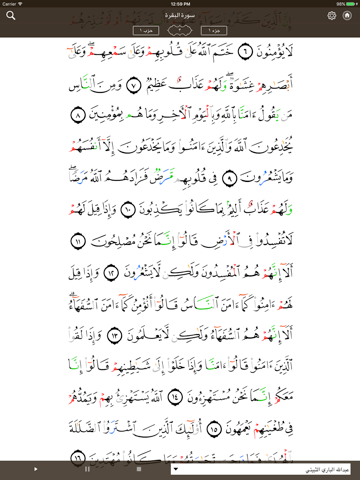 12:09 PM 98%
سورة البقرة
جزء ١ حزب ١
لَا يُؤْمِنُونَ ٦ خَتَمَ ٱللَّهُ عَلَىٰ قُلُوبِهِمْ وَعَلَىٰ سَمْعِهِمْ ۖ وَعَلَىٰ
أَبْصَٰرِهِمْ غِشَٰوَةٌ ۖ وَلَهُمْ عَذَابٌ عَظِيمٌ ٧ وَمِنَ ٱلنَّاسِ
مَن يَقُولُ ءَامَنَّا بِٱللَّهِ وَبِٱلْيَوْمِ ٱلْءَاخِرِ وَمَا هُم بِمُؤْمِنِينَ ٨
يُخَٰدِعُونَ ٱللَّهَ وَٱلَّذِينَ ءَامَنُوا۟ وَمَا يَخْدَعُونَ إِلَّآ أَنفُسَهُمْ
وَمَا يَشْعُرُونَ ٩ فِى قُلُوبِهِم مَّرَضٌ فَزَادَهُمُ ٱللَّهُ مَرَضًا ۖ
وَلَهُمْ عَذَابٌ أَلِيمٌۢ بِمَا كَانُوا۟ يَكْذِبُونَ ١٠ وَإِذَا قِيلَ لَهُمْ
لَا تُفْسِدُوا۟ فِى ٱلْأَرْضِ قَالُوٓا۟ إِنَّمَا نَحْنُ مُصْلِحُونَ ١١
أَلَآ إِنَّهُمْ هُمُ ٱلْمُفْسِدُونَ وَلَٰكِن لَّا يَشْعُرُونَ ١٢ وَإِذَا قِيلَ
لَهُمْ ءَامِنُوا۟ كَمَآ ءَامَنَ ٱلنَّاسُ قَالُوٓا۟ أَنُؤْمِنُ كَمَآ ءَامَنَ ٱلسُّفَهَآءُ ۗ
أَلَآ إِنَّهُمْ هُمُ ٱلسُّفَهَآءُ وَلَٰكِن لَّا يَعْلَمُونَ ١٣ وَإِذَا لَقُوا۟
ٱلَّذِينَ ءَامَنُوا۟ قَالُوٓا۟ ءَامَنَّا وَإِذَا خَلَوْا۟ إِلَىٰ شَيَٰطِينِهِمْ قَالُوٓا۟ إِنَّا
مَعَكُمْ إِنَّمَا نَحْنُ مُسْتَهْزِءُونَ ١٤ ٱللَّهُ يَسْتَهْزِئُ بِهِمْ وَيَمُدُّهُمْ
فِى طُغْيَٰنِهِمْ يَعْمَهُونَ ١٥ أُو۟لَٰٓئِكَ ٱلَّذِينَ ٱشْتَرَوُا۟ ٱلضَّلَٰلَةَ
بِٱلْهُدَىٰ فَمَا رَبِحَت تِّجَٰرَتُهُمْ وَمَا كَانُوا۟ مُهْتَدِينَ ١٦
عبدالله الباري الثبيتي